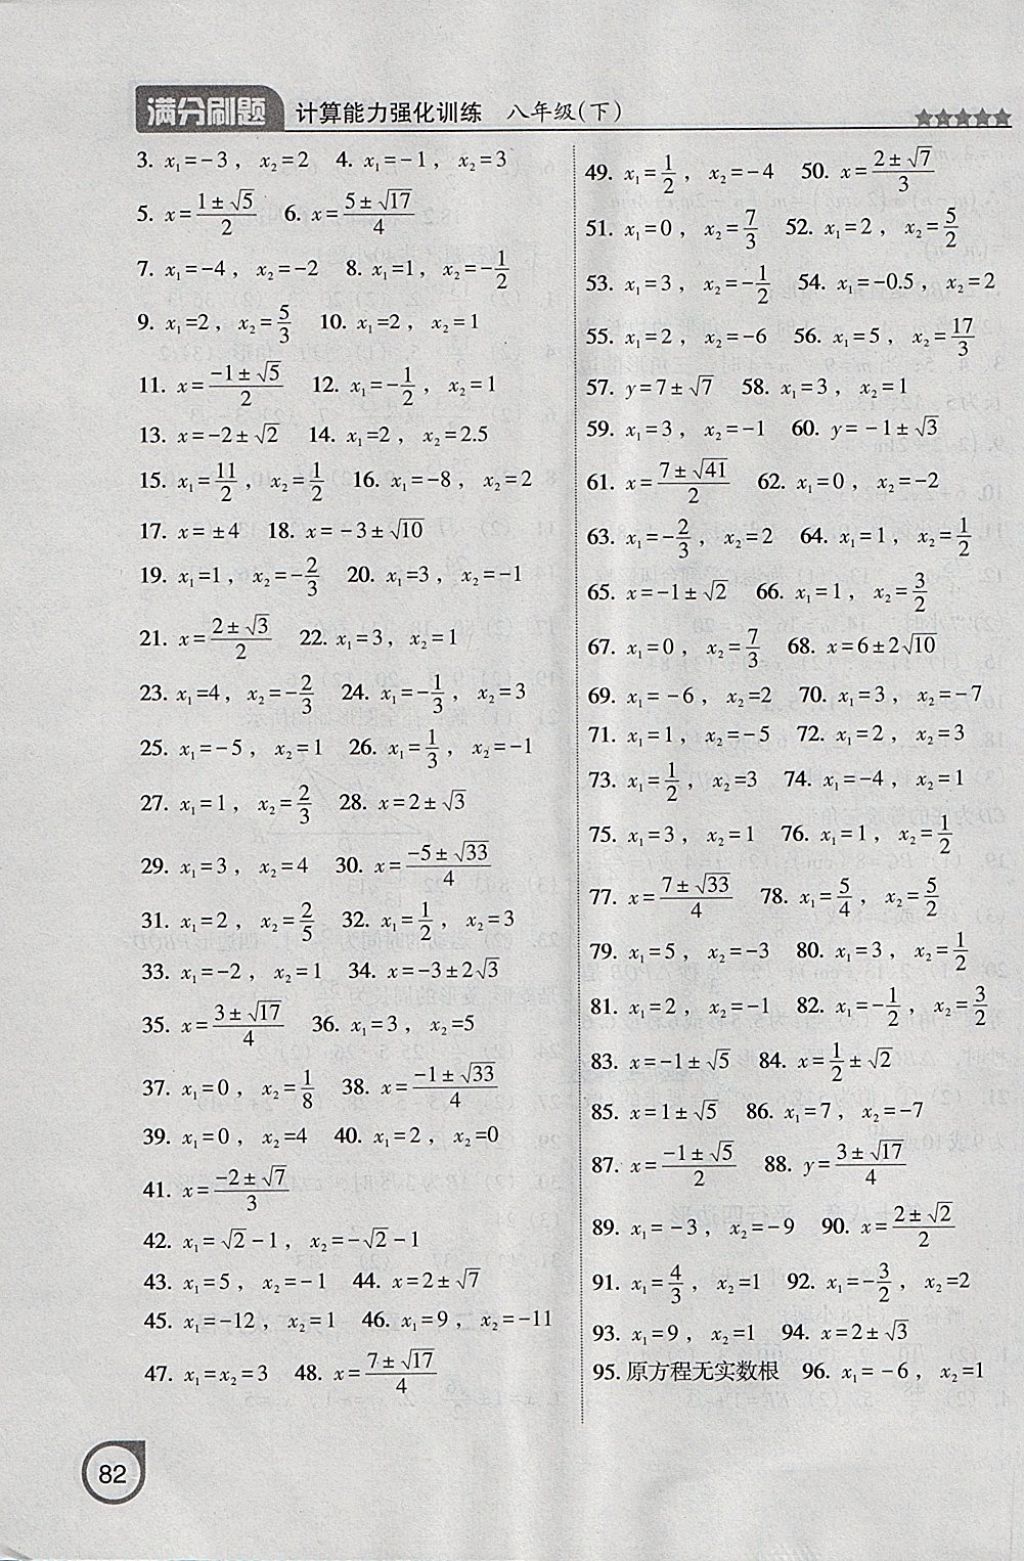 满分刷题 计算能力强化训练 八年级(下) ★★★★★
3. x₁=-3, x₂=2 4. x₁=-1, x₂=3
5. x=(1±√5)/2 6. x=(5±√17)/4
7. x₁=-4, x₂=-2 8. x₁=1, x₂=-1/2
9. x₁=2, x₂=5/3 10. x₁=2, x₂=1
11. x=(-1±√5)/2 12. x₁=-1/2, x₂=1
13. x=-2±√2 14. x₁=2, x₂=2.5
15. x₁=11/2, x₂=1/2 16. x₁=-8, x₂=2
17. x=±4 18. x=-3±√10
19. x₁=1, x₂=-2/3 20. x₁=3, x₂=-1
21. x=(2±√3)/2 22. x₁=3, x₂=1
23. x₁=4, x₂=-2/3 24. x₁=-1/3, x₂=3
25. x₁=-5, x₂=1 26. x₁=1/3, x₂=-1
27. x₁=1, x₂=2/3 28. x=2±√3
29. x₁=3, x₂=4 30. x=(-5±√33)/4
31. x₁=2, x₂=2/5 32. x₁=1/2, x₂=3
33. x₁=-2, x₂=1 34. x=-3±2√3
35. x=(3±√17)/4 36. x₁=3, x₂=5
37. x₁=0, x₂=1/8 38. x=(-1±√33)/4
39. x₁=0, x₂=4 40. x₁=2, x₂=0
41. x=(-2±√7)/3
42. x₁=√2-1, x₂=-√2-1
43. x₁=5, x₂=-1 44. x=2±√7
45. x₁=-12, x₂=1 46. x₁=9, x₂=-11
47. x₁=x₂=3 48. x=(7±√17)/4
49. x₁=1/2, x₂=-4 50. x=(2±√7)/3
51. x₁=0, x₂=7/3 52. x₁=2, x₂=5/2
53. x₁=3, x₂=-1/2 54. x₁=-0.5, x₂=2
55. x₁=2, x₂=-6 56. x₁=5, x₂=17/3
57. y=7±√7 58. x₁=3, x₂=1
59. x₁=3, x₂=-1 60. y=-1±√3
61. x=(7±√41)/2 62. x₁=0, x₂=-2
63. x₁=-2/3, x₂=2 64. x₁=1, x₂=1/2
65. x=-1±√2 66. x₁=1, x₂=3/2
67. x₁=0, x₂=7/3 68. x=6±2√10
69. x₁=-6, x₂=2 70. x₁=3, x₂=-7
71. x₁=1, x₂=-5 72. x₁=2, x₂=3
73. x₁=1/2, x₂=3 74. x₁=-4, x₂=1
75. x₁=3, x₂=1 76. x₁=1, x₂=1/2
77. x=(7±√33)/4 78. x₁=5/4, x₂=5/2
79. x₁=5, x₂=-3 80. x₁=3, x₂=1/2
81. x₁=2, x₂=-1 82. x₁=-1/2, x₂=3/2
83. x=-1±√5 84. x=1/2±√2
85. x=1±√5 86. x₁=7, x₂=-7
87. x=(-1±√5)/2 88. y=(3±√17)/4
89. x₁=-3, x₂=-9 90. x=(2±√2)/2
91. x₁=4/3, x₂=1 92. x₁=-3/2, x₂=2
93. x₁=9, x₂=1 94. x=2±√3
95. 原方程无实数根 96. x₁=-6, x₂=1
82